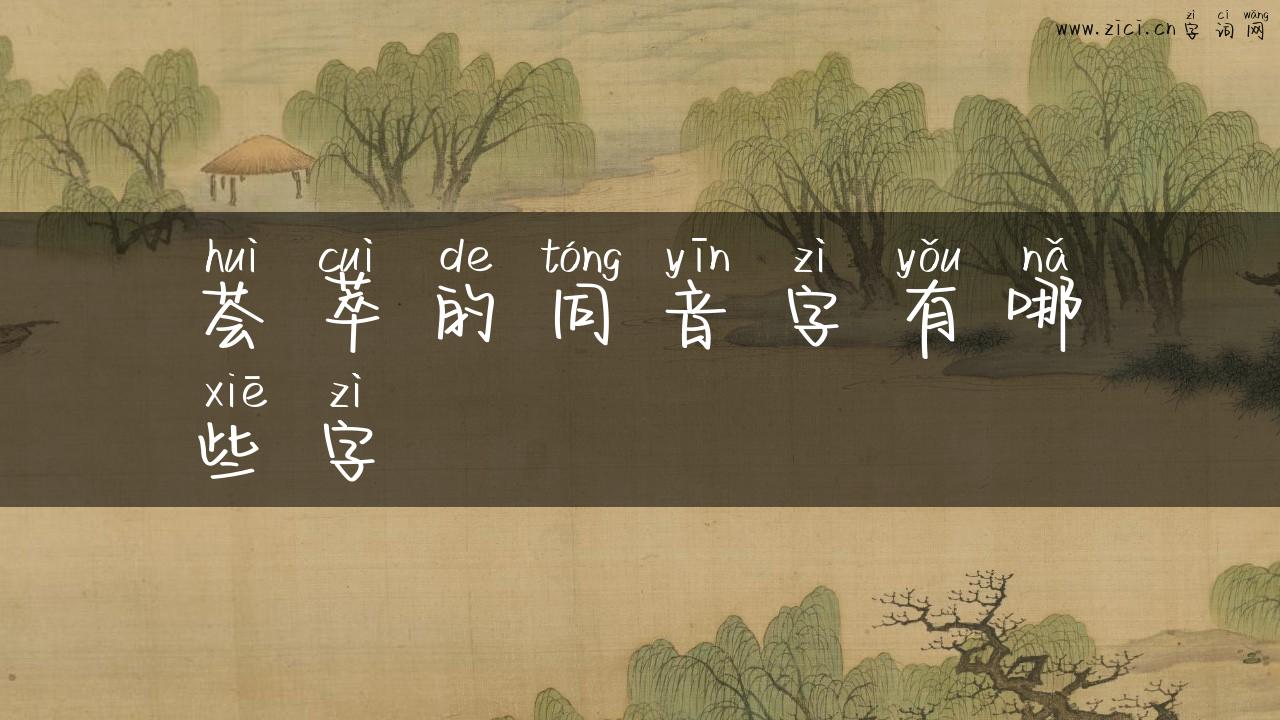 zì cí wǎng
www.zici.cn 字 词 网
huì cuì de tóng yīn zì yǒu nǎ
荟 萃 的 同 音 字 有 哪
xiē zì
些 字